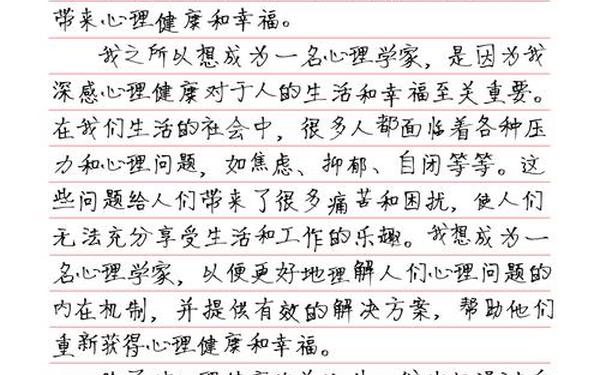 带来心理健康和幸福。
我之所以想成为一名心理学家，是因为我
深感心理健康对于人的生活和幸福至关重要。
在我们生活的社会中，很多人都面临着各种压
力和心理问题，如焦虑、抑郁、自闭等等。这
些问题给人们带来了很多痛苦和困扰，使人们
无法充分享受生活和工作的乐趣。我想成为一
名心理学家，以便更好地理解人们心理问题的
内在机制，并提供有效的解决方案，帮助他们
重新获得心理健康和幸福。